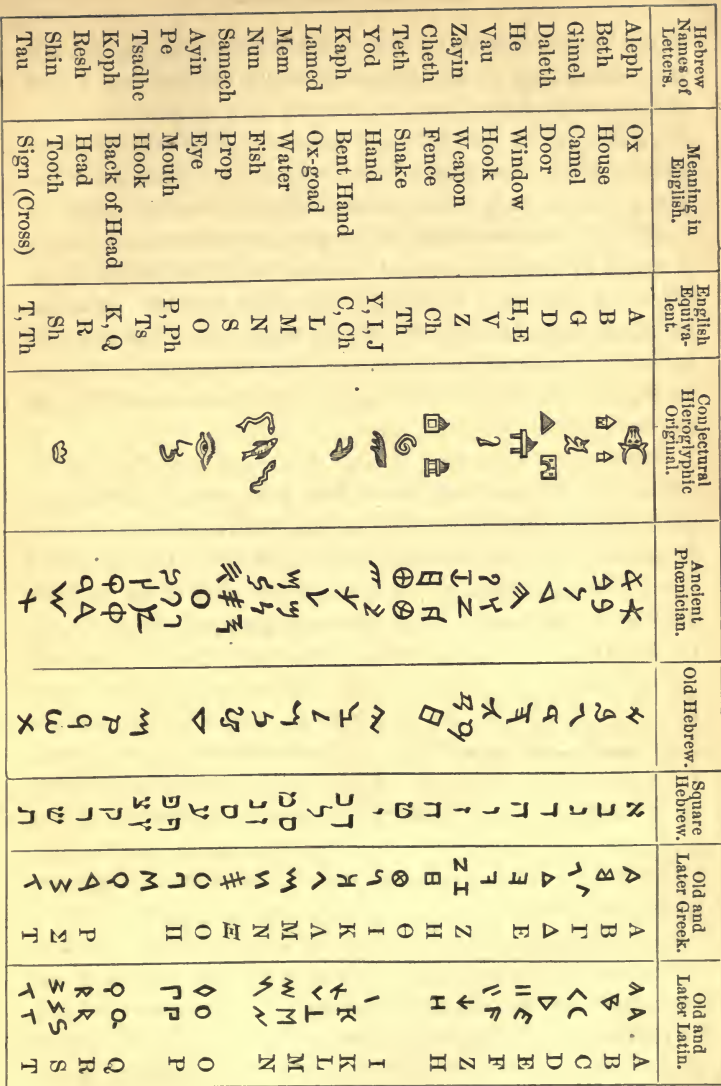 Hebrew Names of Letters. Meaning in English. English Equiva-lent. Conjectural Hieroglyphic Original. Ancient Phœnician. Old Hebrew. Square Hebrew. Old and Later Greek. Old and Later Latin.
Aleph Ox A א Α A
Beth House B ב Β B
Gimel Camel G ג Γ C
Daleth Door D ד Δ D
He Window H, E ה Ε E
Vau Hook V ו F
Zayin Weapon Z ז Ζ Z
Cheth Fence Ch ח Η H
Teth Snake Th ט Θ
Yod Hand Y, I, J י Ι I
Kaph Bent Hand C, Ch כ ך Κ K
Lamed Ox-goad L ל Λ L
Mem Water M מ ם Μ M
Nun Fish N נ ן Ν N
Samech Prop S ס Ξ
Ayin Eye O ע Ο O
Pe Mouth P, Ph פ ף Π P
Tsadhe Hook Ts צ ץ
Koph Back of Head K, Q ק Q
Resh Head R ר Ρ R
Shin Tooth Sh ש Σ S
Tau Sign (Cross) T, Th ת Τ T